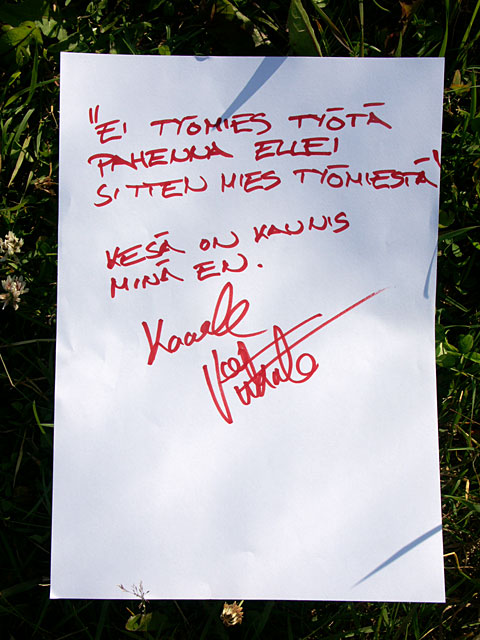 "EI TYÖMIES TYÖTÄ
PAHENNA ELLEI
SITTEN MIES TYÖMIESTÄ"
KESÄ ON KAUNIS
MINÄ EN.
Kaarle